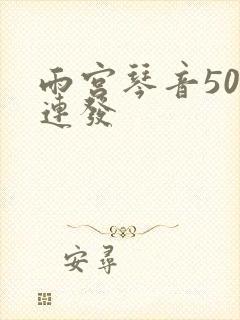 雨宮琴音50
連發
安尋